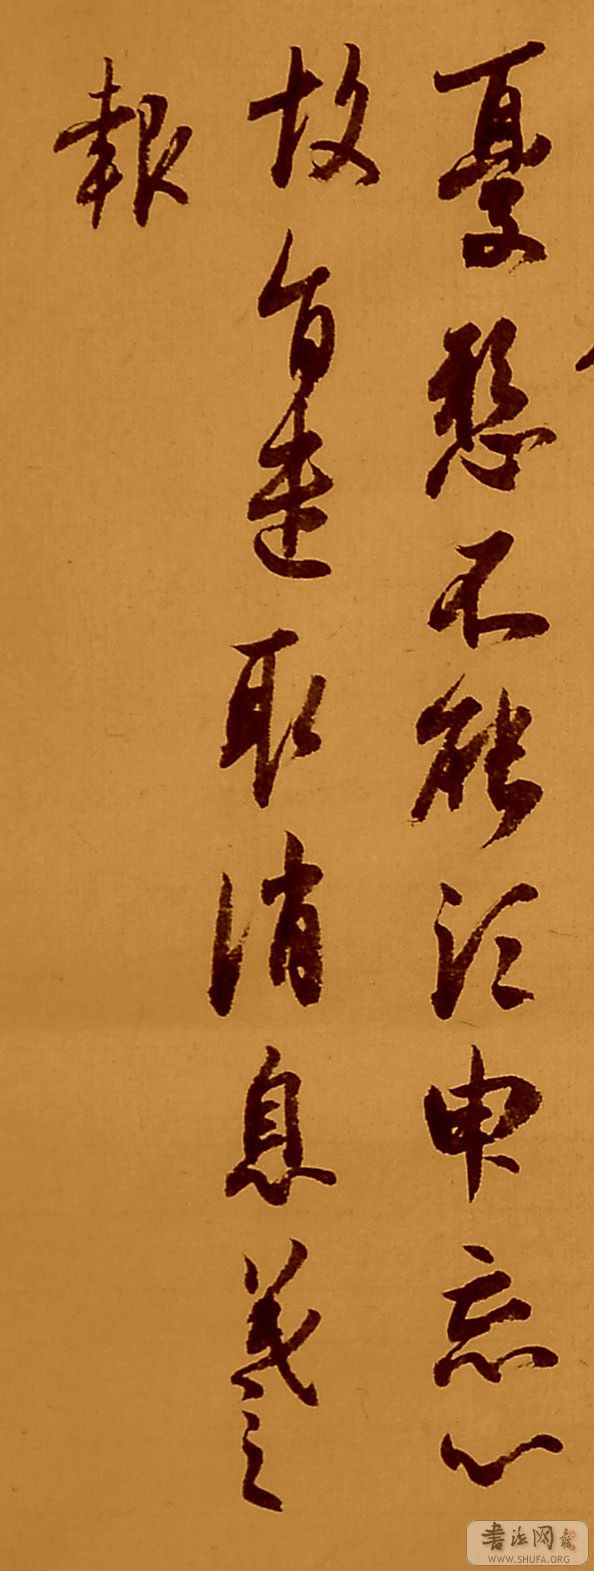 憂懸不能須臾忘心
故旨遣取消息羲之
報
書法网
WWW.SHUFA.ORG